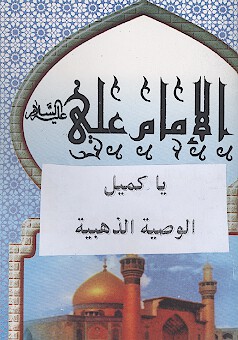 الإمام علي
عليه السلام
يا كميل
الوصية الذهبية